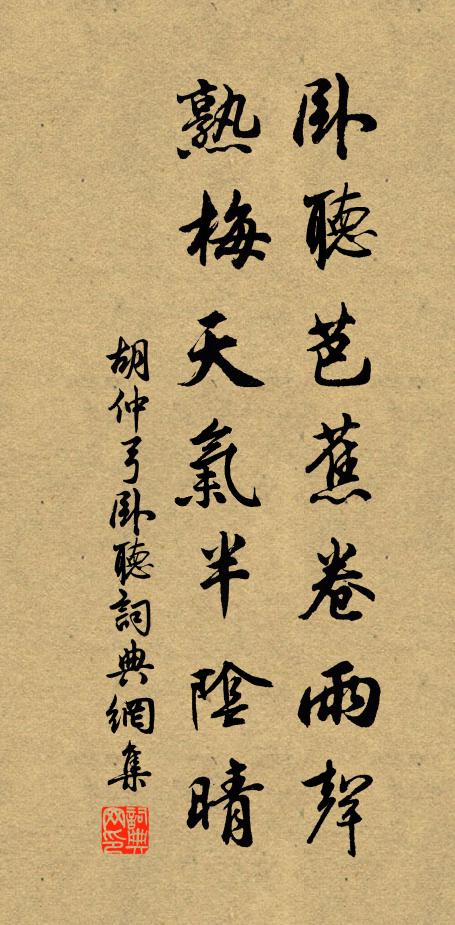 卧聽芭蕉卷雨聲
熟梅天氣半陰晴
胡仲弓卧聽詞典網集
詞典
网印